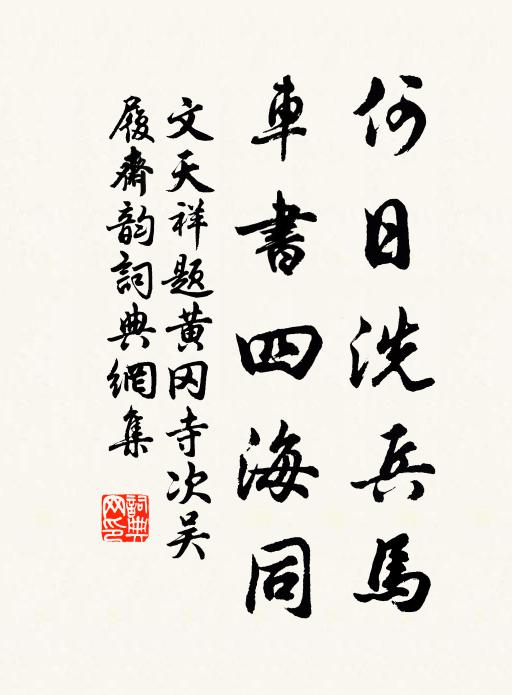 何日洗兵馬
車書四海同
文天祥题黄冈寺次吴
履齋韵詞典網集
詞典
网印